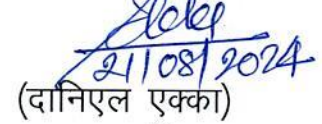 21/08/2024
(दानिएल एक्का)